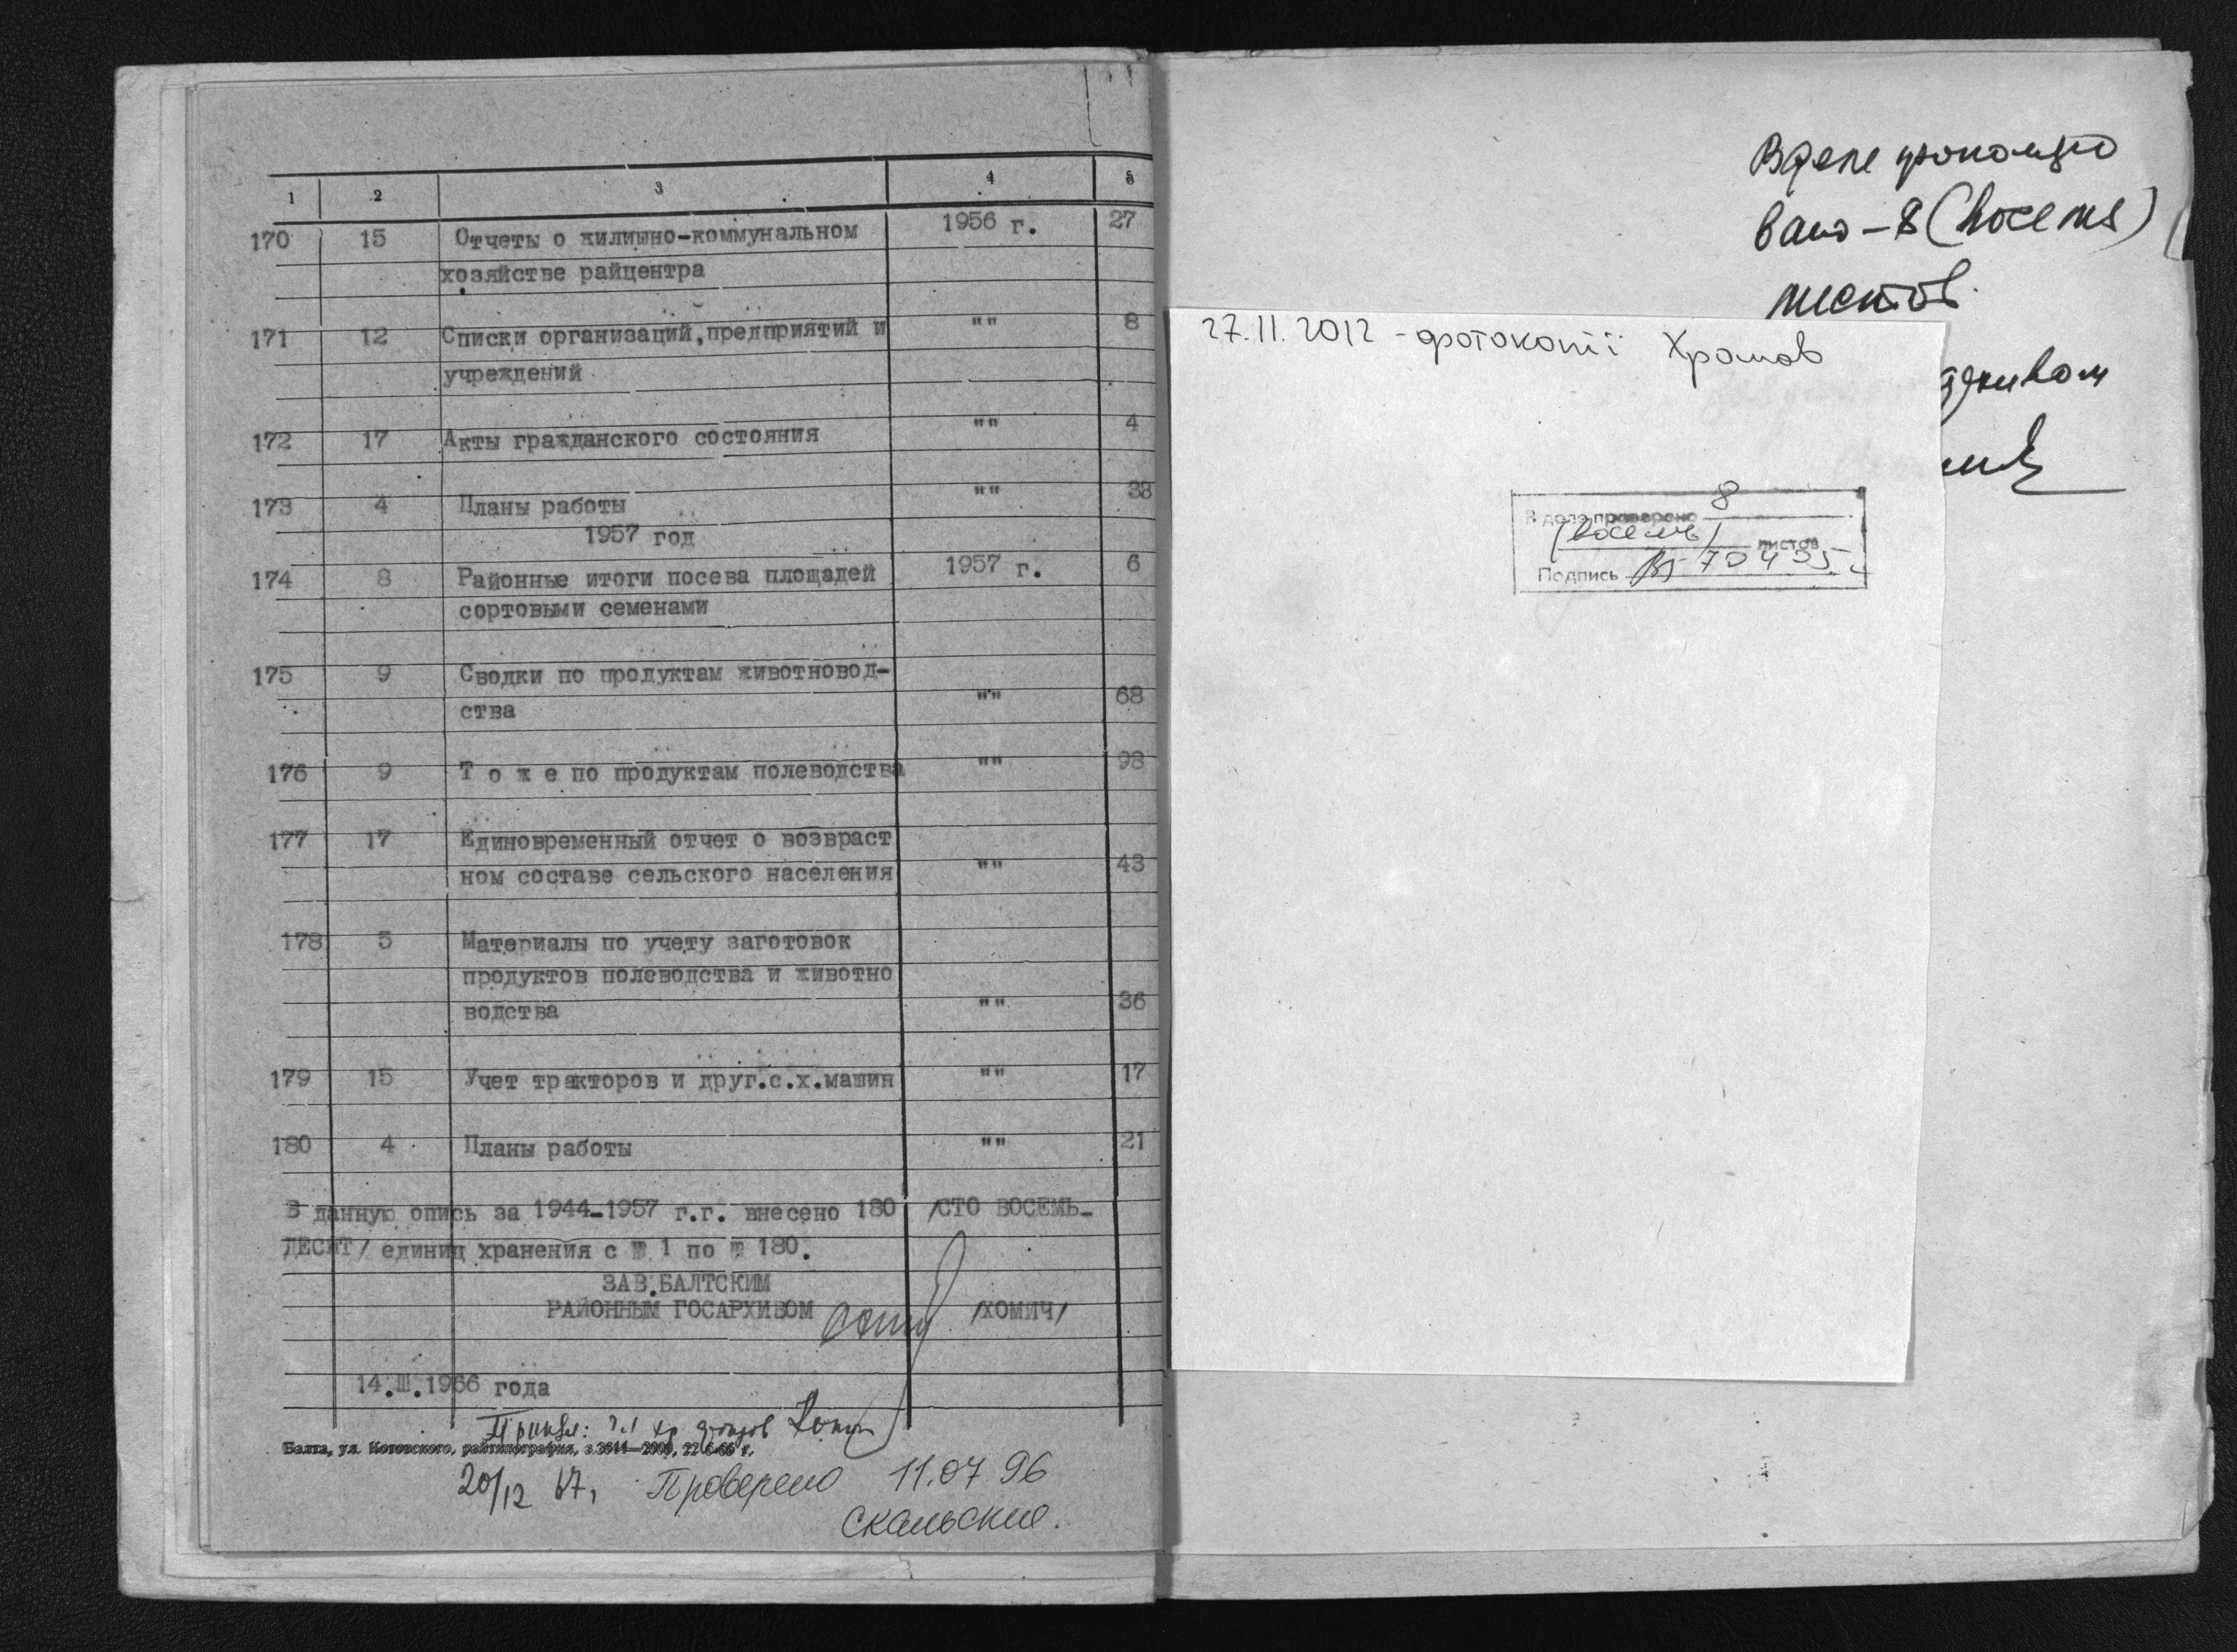 1 2 3 4 5
170 15 Отчеты о жилишно-коммунальном 1956 г. 27
хозяйстве райцентра
171 12 Списки организаций, предприятий и "" 8
учреждений
172 17 Акты гражданского состояния "" 4
173 4 Планы работы "" 38
1957 год
174 8 Районные итоги посева площадей 1957 г. 6
сортовыми семенами
175 9 Сводки по продуктам животновод-
ства "" 68
176 9 Т о ж е по продуктам полеводства "" 98
177 17 Единовременный отчет о возвраст
ном составе сельского населения "" 43
178 5 Материалы по учету заготовок
продуктов полеводства и животно
водства "" 36
179 15 Учет тракторов и друг.с.х.машин "" 17
180 4 Планы работы "" 21
В данную опись за 1944-1957 г.г. внесено 180 /СТО ВОСЕМЬ-
ДЕСЯТ/ единиц хранения с № 1 по № 180.
ЗАВ.БАЛТСКИМ
РАЙОННЫМ ГОСАРХИВОМ /ХОМИЧ/
14.III.1966 года
Балта, ул. Котовского, райтипография,
20/12 67,
Проверено 11.07 96
В деле пронумеро
вано - 8 (восемь)
листов.
27.11.2012 - фотокопії Храмов
В деле проверено 8
(восемь) листов
Подпись